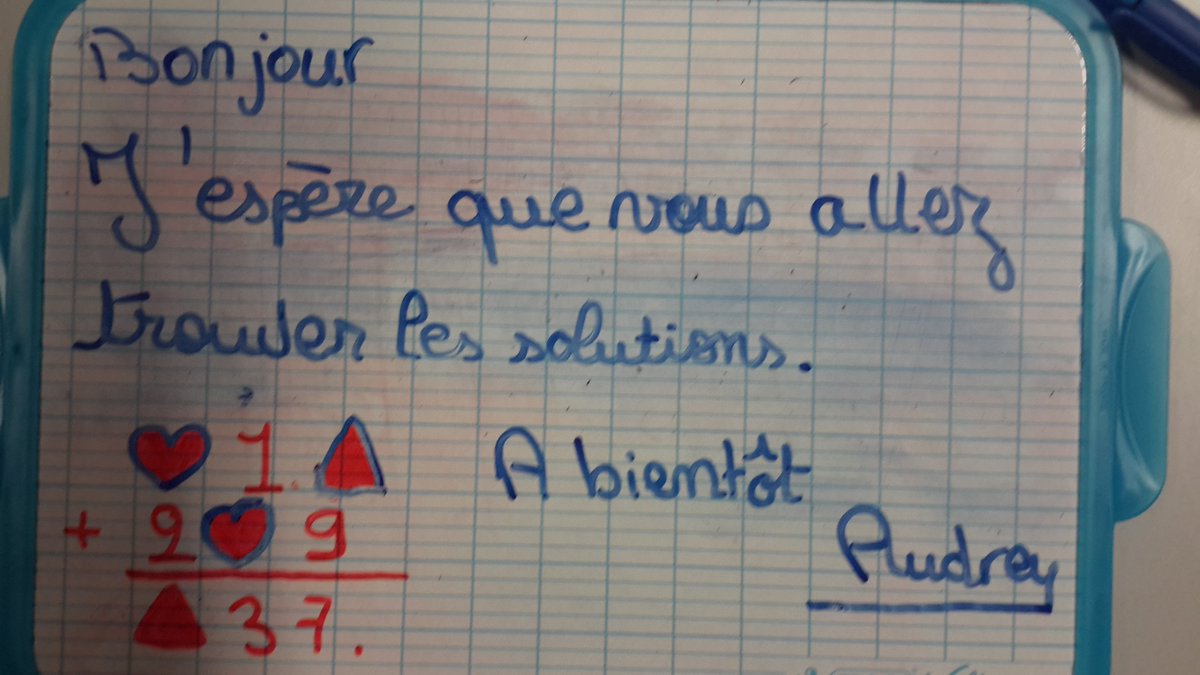 Bonjour
J'espère que vous allez
trouver les solutions.
♥ 1 ▲
+ 2 ♥ 9
▲ 3 7.
A bientôt
Audrey